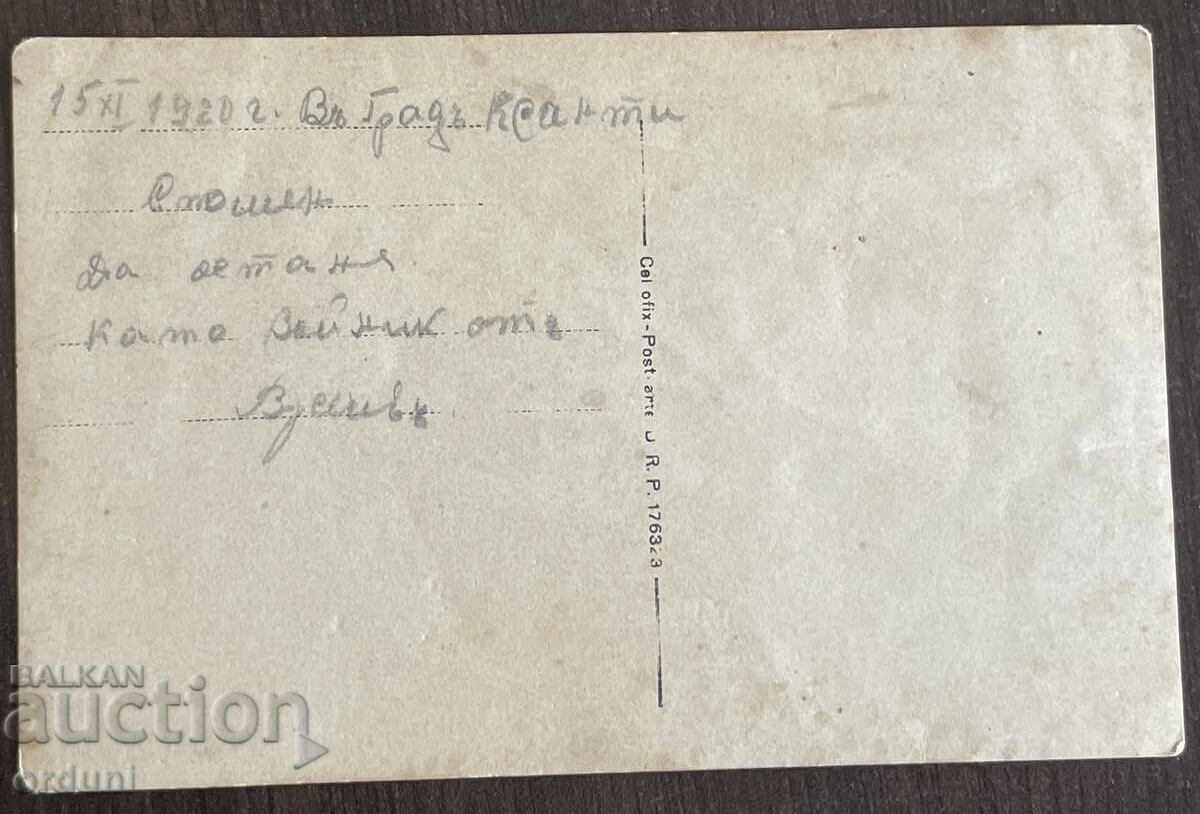 15 XI 1920 г. Въ Градъ Ксанти
Стомен
Да остана
Като Войник отъ
Cel ofix-Post arte D R. P. 1763
BALKAN
auction
orduni